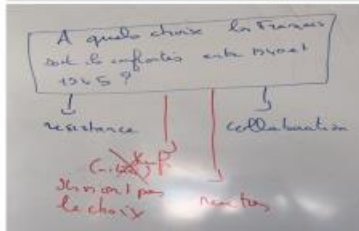 A quels choix les Français
sont-ils confrontés entre 1940 et
1945 ?
resistance
collaboration
ils n'ont pas
le choix
neutres